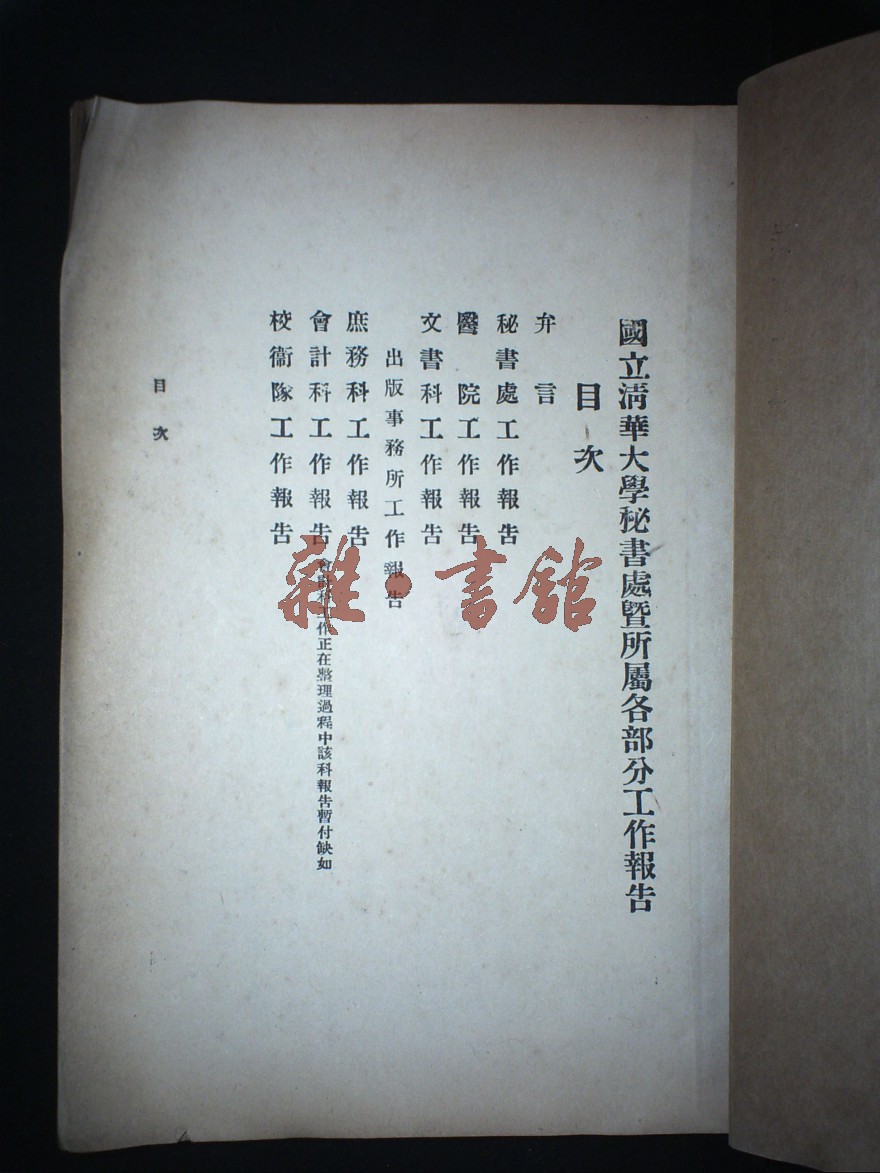 國立淸華大學秘書處暨所屬各部分工作報告
目次
弁言
秘書處工作報告
醫院工作報告
文書科工作報告
出版事務所工作報告
庶務科工作報告
會計科工作報告 會計科工作正在整理過程中該科報告暫付缺如
校衞隊工作報告
目次
雜·書館